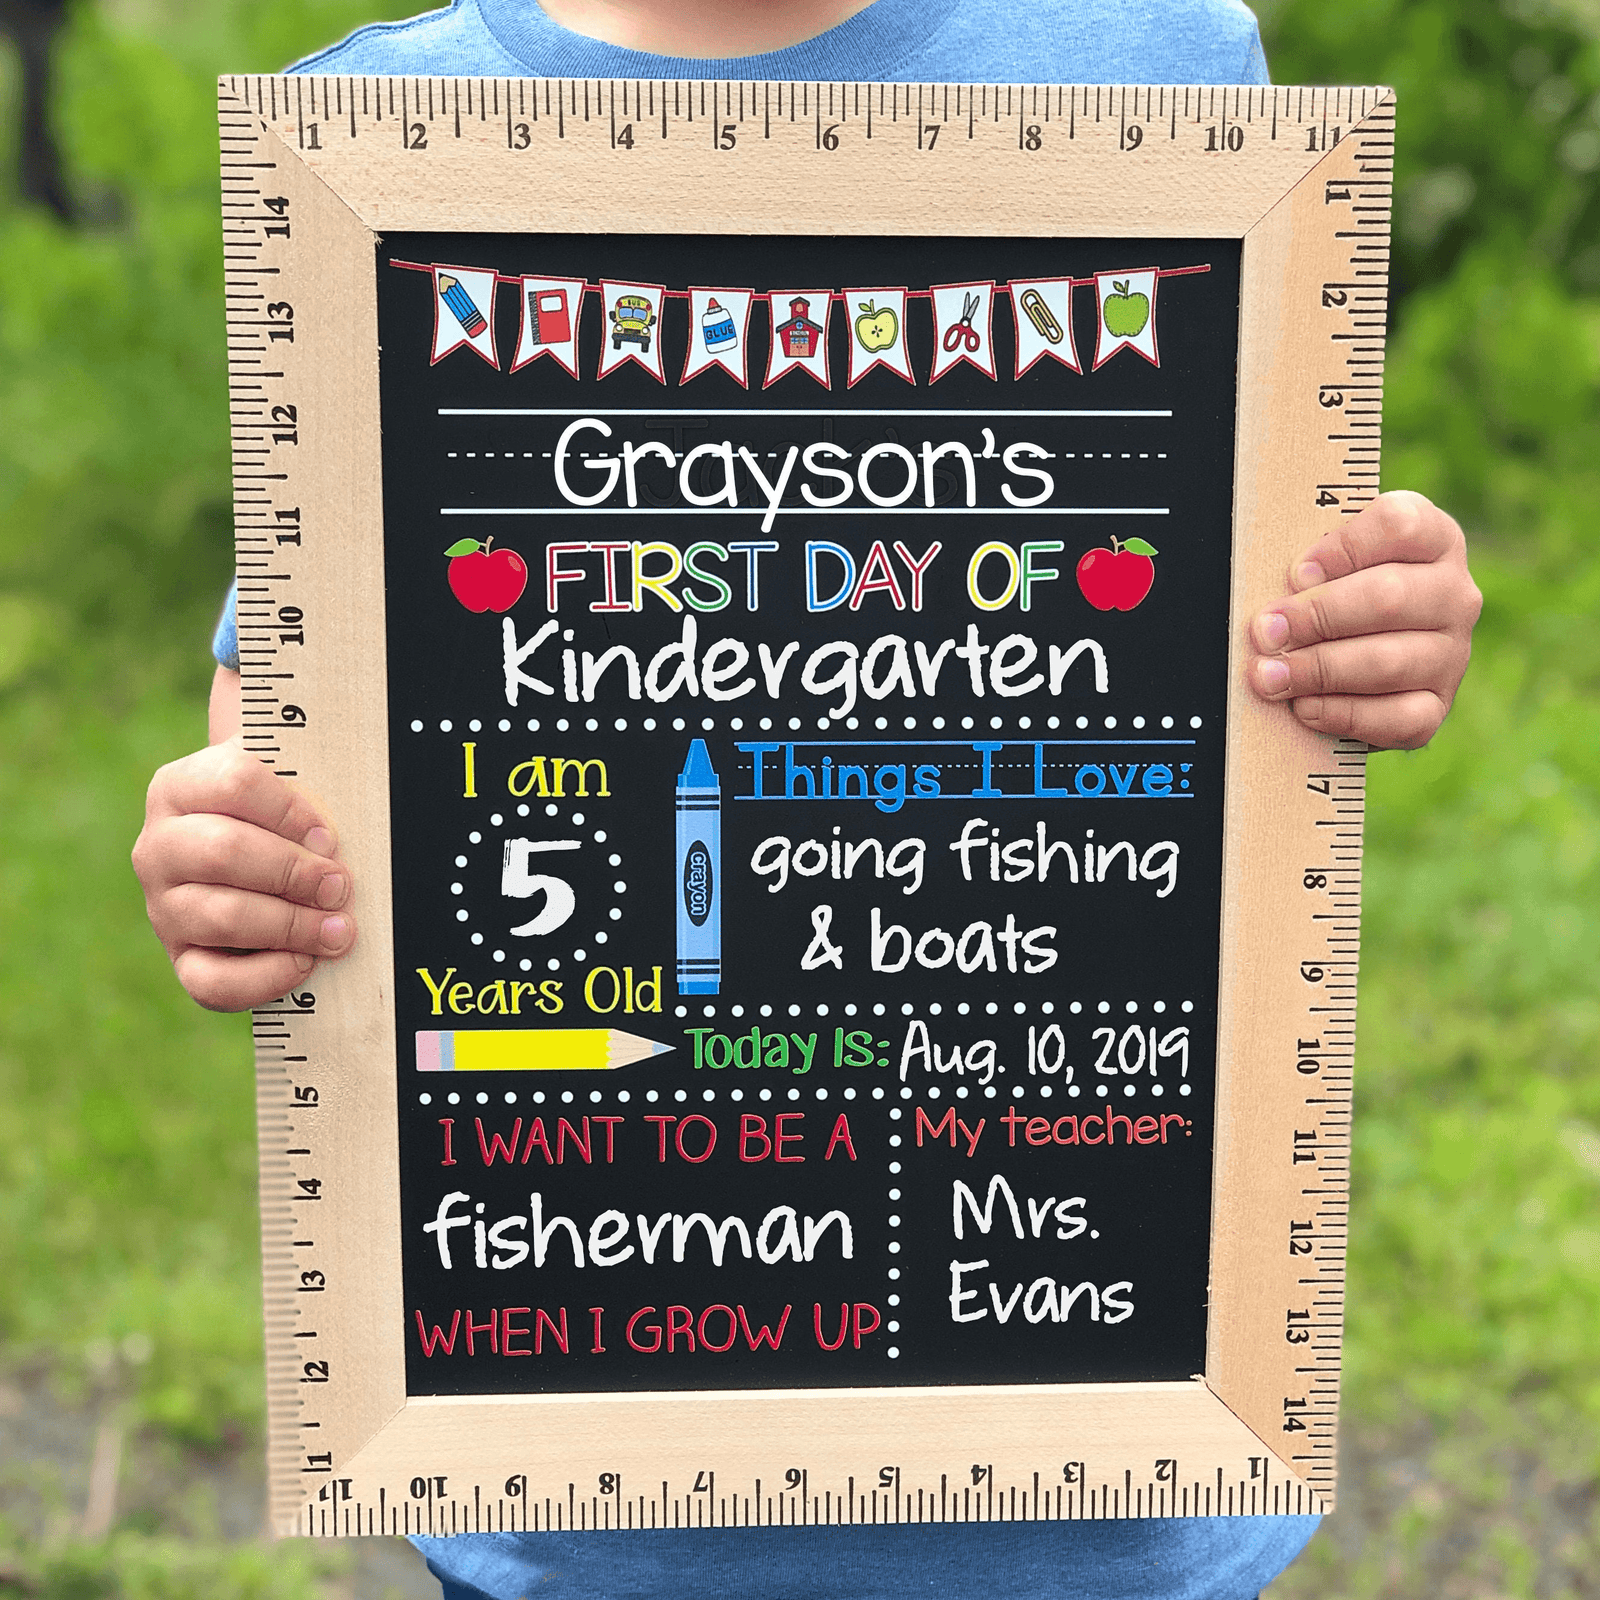 1 2 3 4 5 6 7 8 9 10 11
14 13 12 11 10 9 6 5 4 3 2 1
1 2 3 4 7 8 9 10 11 12 13 14
BUS
GLUE
Grayson's
FIRST DAY OF
Kindergarten
I am
5
Years Old
crayon
Things I Love:
going fishing
& boats
Today Is: Aug. 10, 2019
I WANT TO BE A
fisherman
WHEN I GROW UP
My teacher:
Mrs.
Evans
11 10 9 8 7 6 5 4 3 2 1